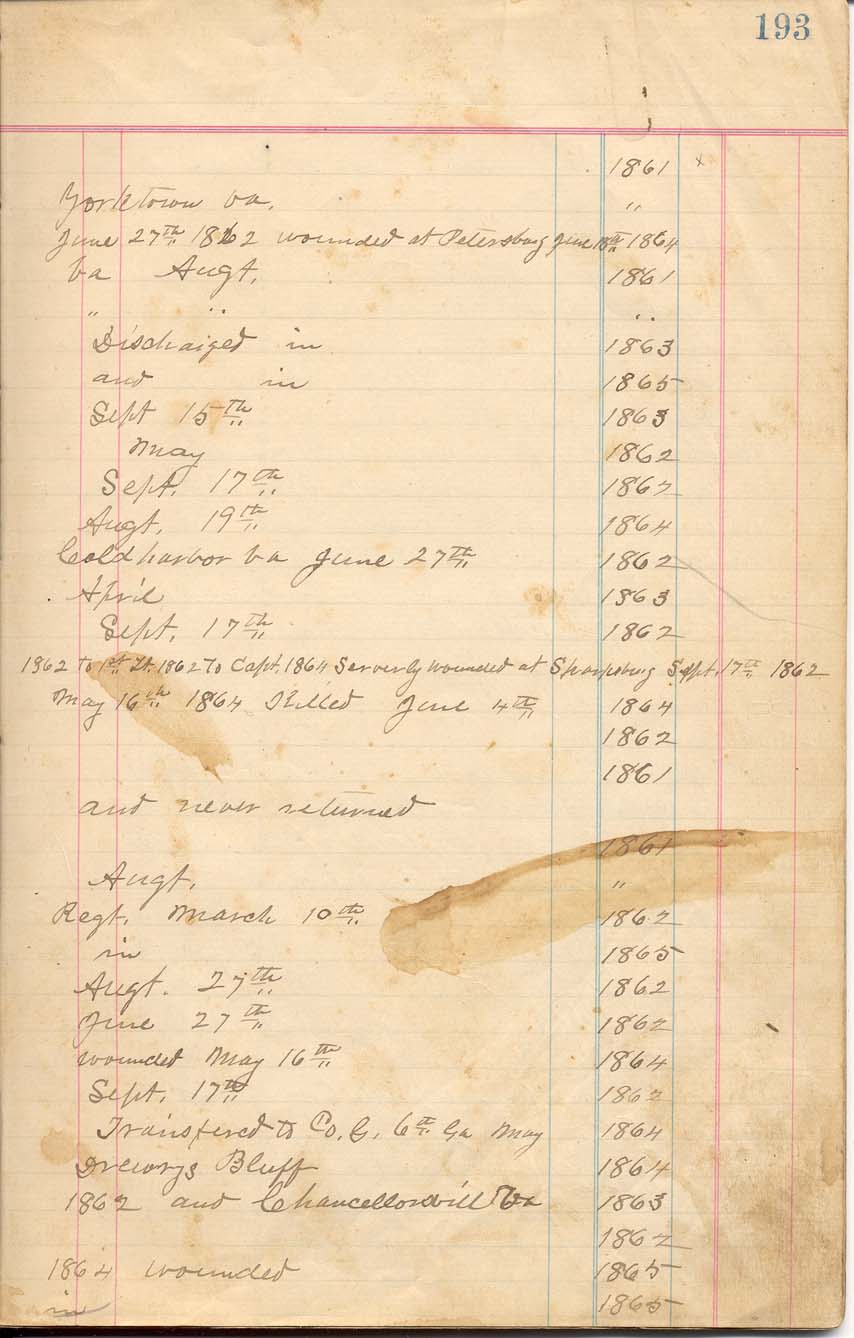 193
1861 x
Yorktown va. "
June 27th 1862 wounded at Petersburg June 18th 1864
va Augt. 1861
" " "
Discharged in 1863
and in 1865
Sept 15th 1863
May 1862
Sept. 17th 1862
Augt. 19th 1864
Coldharbor va June 27th 1862
April 1863
Sept. 17th 1862
1862 to 1st Lt. 1862 To Capt. 1864 Serverly wounded at Sharpsburg Sept. 17th 1862
May 16th 1864 Killed June 4th 1864
1862
1861
and never returned
1861
Augt. "
Regt. March 10th 1862
in 1865
Augt. 27th 1862
June 27th 1862
wounded May 16th 1864
Sept. 17th 1862
Transfered to Co. G. 6th Ga May 1864
Drewrys Bluff 1864
1862 and Chancellorsvill Va 1863
1862
1864 wounded 1865
in 1865